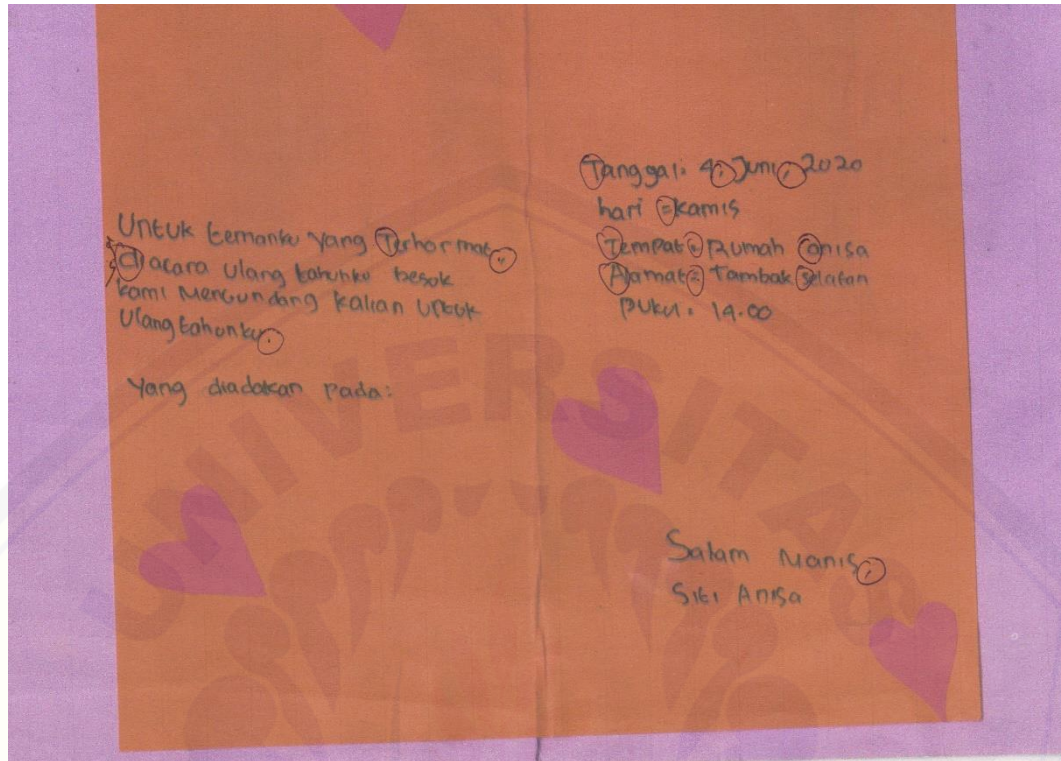 Untuk temanku yang Terhormat,,
di acara ulang tahunku besok
kami Mengundang kalian untuk
Ulang tahunku.
Yang diadakan pada:
Tanggal: 4, Juni, 2020
hari = Kamis
Tempat = Rumah anisa
Alamat = Tambak selatan
pukul: 14.00
Salam Manis,
Siti Anisa
UNIVERSITAS